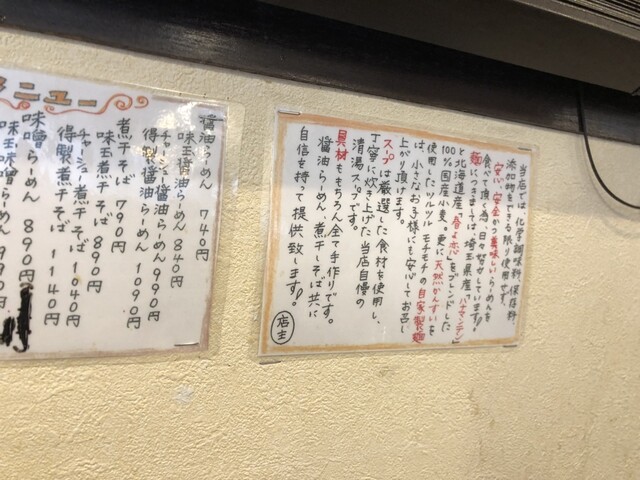 当店では、化学調味料、保存料
添加物をできる限り使用せず、
安心、安全かつ美味しいらーめんを
食べて頂く為、日々努力しています!
麺につきましては、埼玉県産「ハナマンテン」
と北海道産「春よ恋」をブレンドした
100%国産小麦。更に天然かんすいを
使用したツルツル モチモチの自家製麺
は、小さなお子様にも安心してお召し
上がり頂けます。
スープは厳選した食材を使用し、
丁寧に炊き上げた当店自慢の
清湯スープです。
具材ももちろん全て手作りです。
醤油らーめん、煮干しそば共に
自信を持って提供致します!
店主
メニュー
醤油らーめん 740円
味玉醤油らーめん 840円
チャーシュー醤油らーめん 990円
得製醤油らーめん 1090円
煮干そば 790円
味玉煮干そば 890円
チャーシュー煮干そば 1040円
得製煮干そば 1140円
味噌らーめん 890円
味玉味噌らーめん 990円